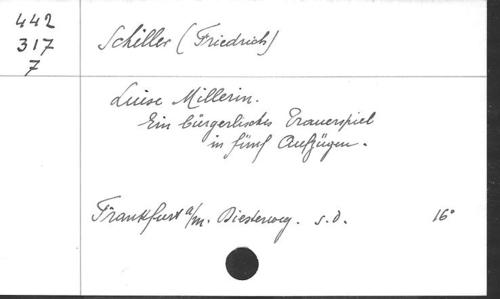 442
317
7
Schiller (Friedrich)
Luise Millerin.
Ein bürgerliches Trauerspiel
in fünf Aufzügen.
Frankfurt a/m. Diesterweg. s.d. 16°